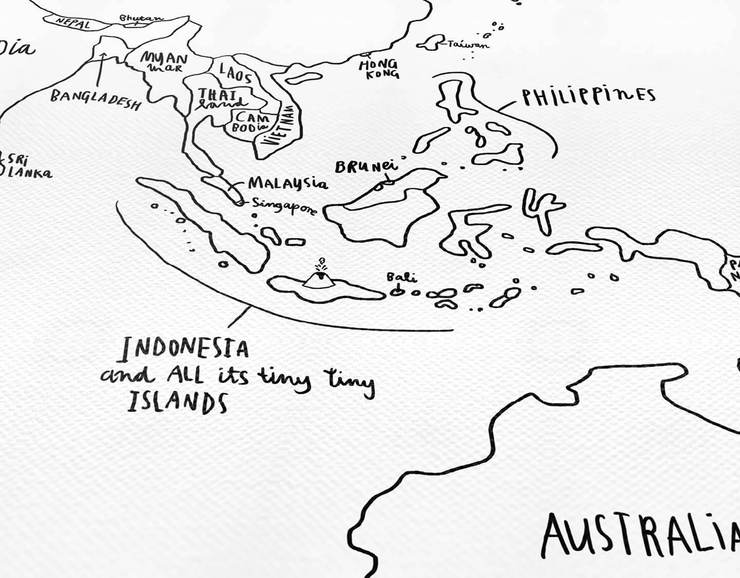 NEPAL
Bhutan
Dia
MYAN
mar
BANGLADESH
LAOS
THAI
land
CAM
BODia
VIETNAM
HONG
KONG
Taiwan
PHILIPPINES
SRi
LANKa
BRUNei
MALAYSia
Singapore
Bali
INDONESIA
and ALL its tiny tiny
ISLANDS
AUSTRALiA